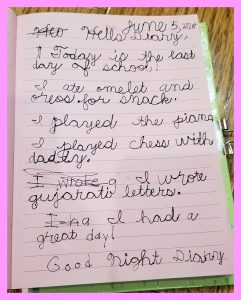 June 5, 2018
Hello Diary.
Today is the last
day of school!
I ate omelet and
oreos for snack.
I played the piano
I played chess with
daddy.
I wrote g I wrote
gujarati letters.
I had a
great day!
Good Night Diary